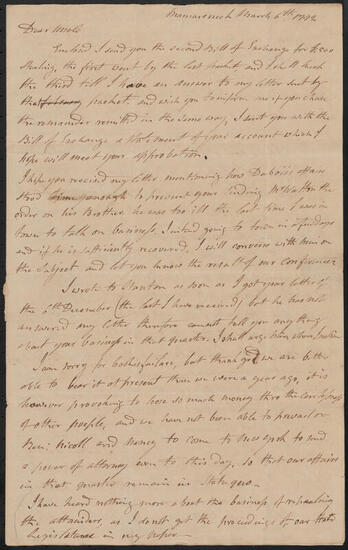 Mamaroneck March 6th 1792
Dear Uncle
Inclosed I send you the second Bill of Exchange for £200
Sterling, the first went by the last packet and I shall keep
the third till I have an answer to my letter sent by
that packet and wish you to inform me if you chuse
the remainder remitted in the same way, I sent you with the
Bill of Exchange a Statement of your account which I
hope will meet your approbation.
I hope you received my letter mentioning how Debois's affairs
stood to prevent your sending McWatton the
order on his Brother he was too ill the last time I was in
town to talk on business, I intend going to town in a few days
and if he is sufficiently recovered, I will converse with him on
the subject and let you know the result of our conference.
I wrote to Stanton as soon as I got your letter of
the 6th December (the last I have received) but he has not
answered my letter therefore cannot tell you any thing
about your business in that quarter. I shall
I am sorry for failure, but thank god we are better
able to bear it at present than we were a year ago, it is
however provoking to lose so much money thro the carelessness
of other people, and we have not been able to prevail on
Ben: Nicoll and Henry to come to New York to send
a power of attorney even to this day, so that our affairs
in that quarter remain in Statu quo.
I have heard nothing more about the business of repealing
the attainders, as I don't get the proceedings of our State
Legislature in my paper.